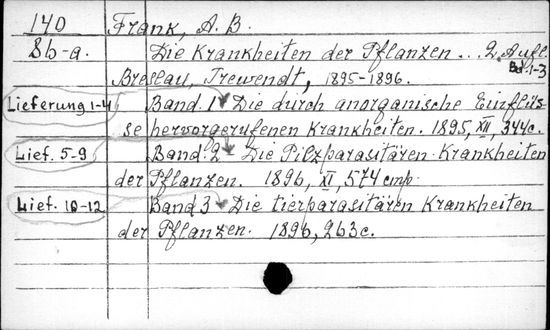 140 Frank, A. B.
8b-a. Die Krankheiten der Pflanzen... 2 Aufl.
Bd. 1-3
Breslau, Trewendt, 1895-1896.
Lieferung 1-4 Band 1 Die durch anorganische Einflüs-
se hervorgerufenen Krankheiten. 1895, XII, 344c.
Lief. 5-9 Band 2 Die Pilzparasitären Krankheiten
der Pflanzen. 1896, XI, 574 стр.
Lief. 10-12 Band 3 Die tierparasitären Krankheiten
der Pflanzen. 1896, 263c.